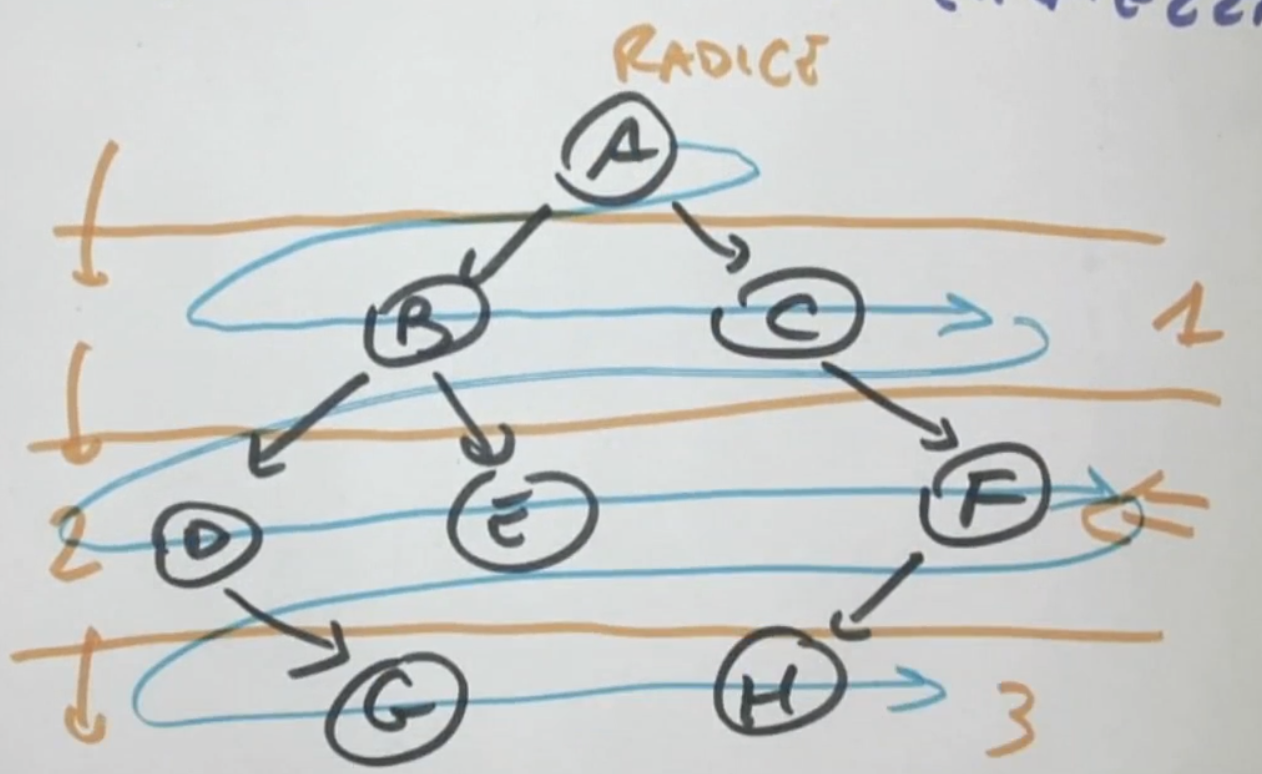 RADICE
A
B C 1
2 D E F
G H 3